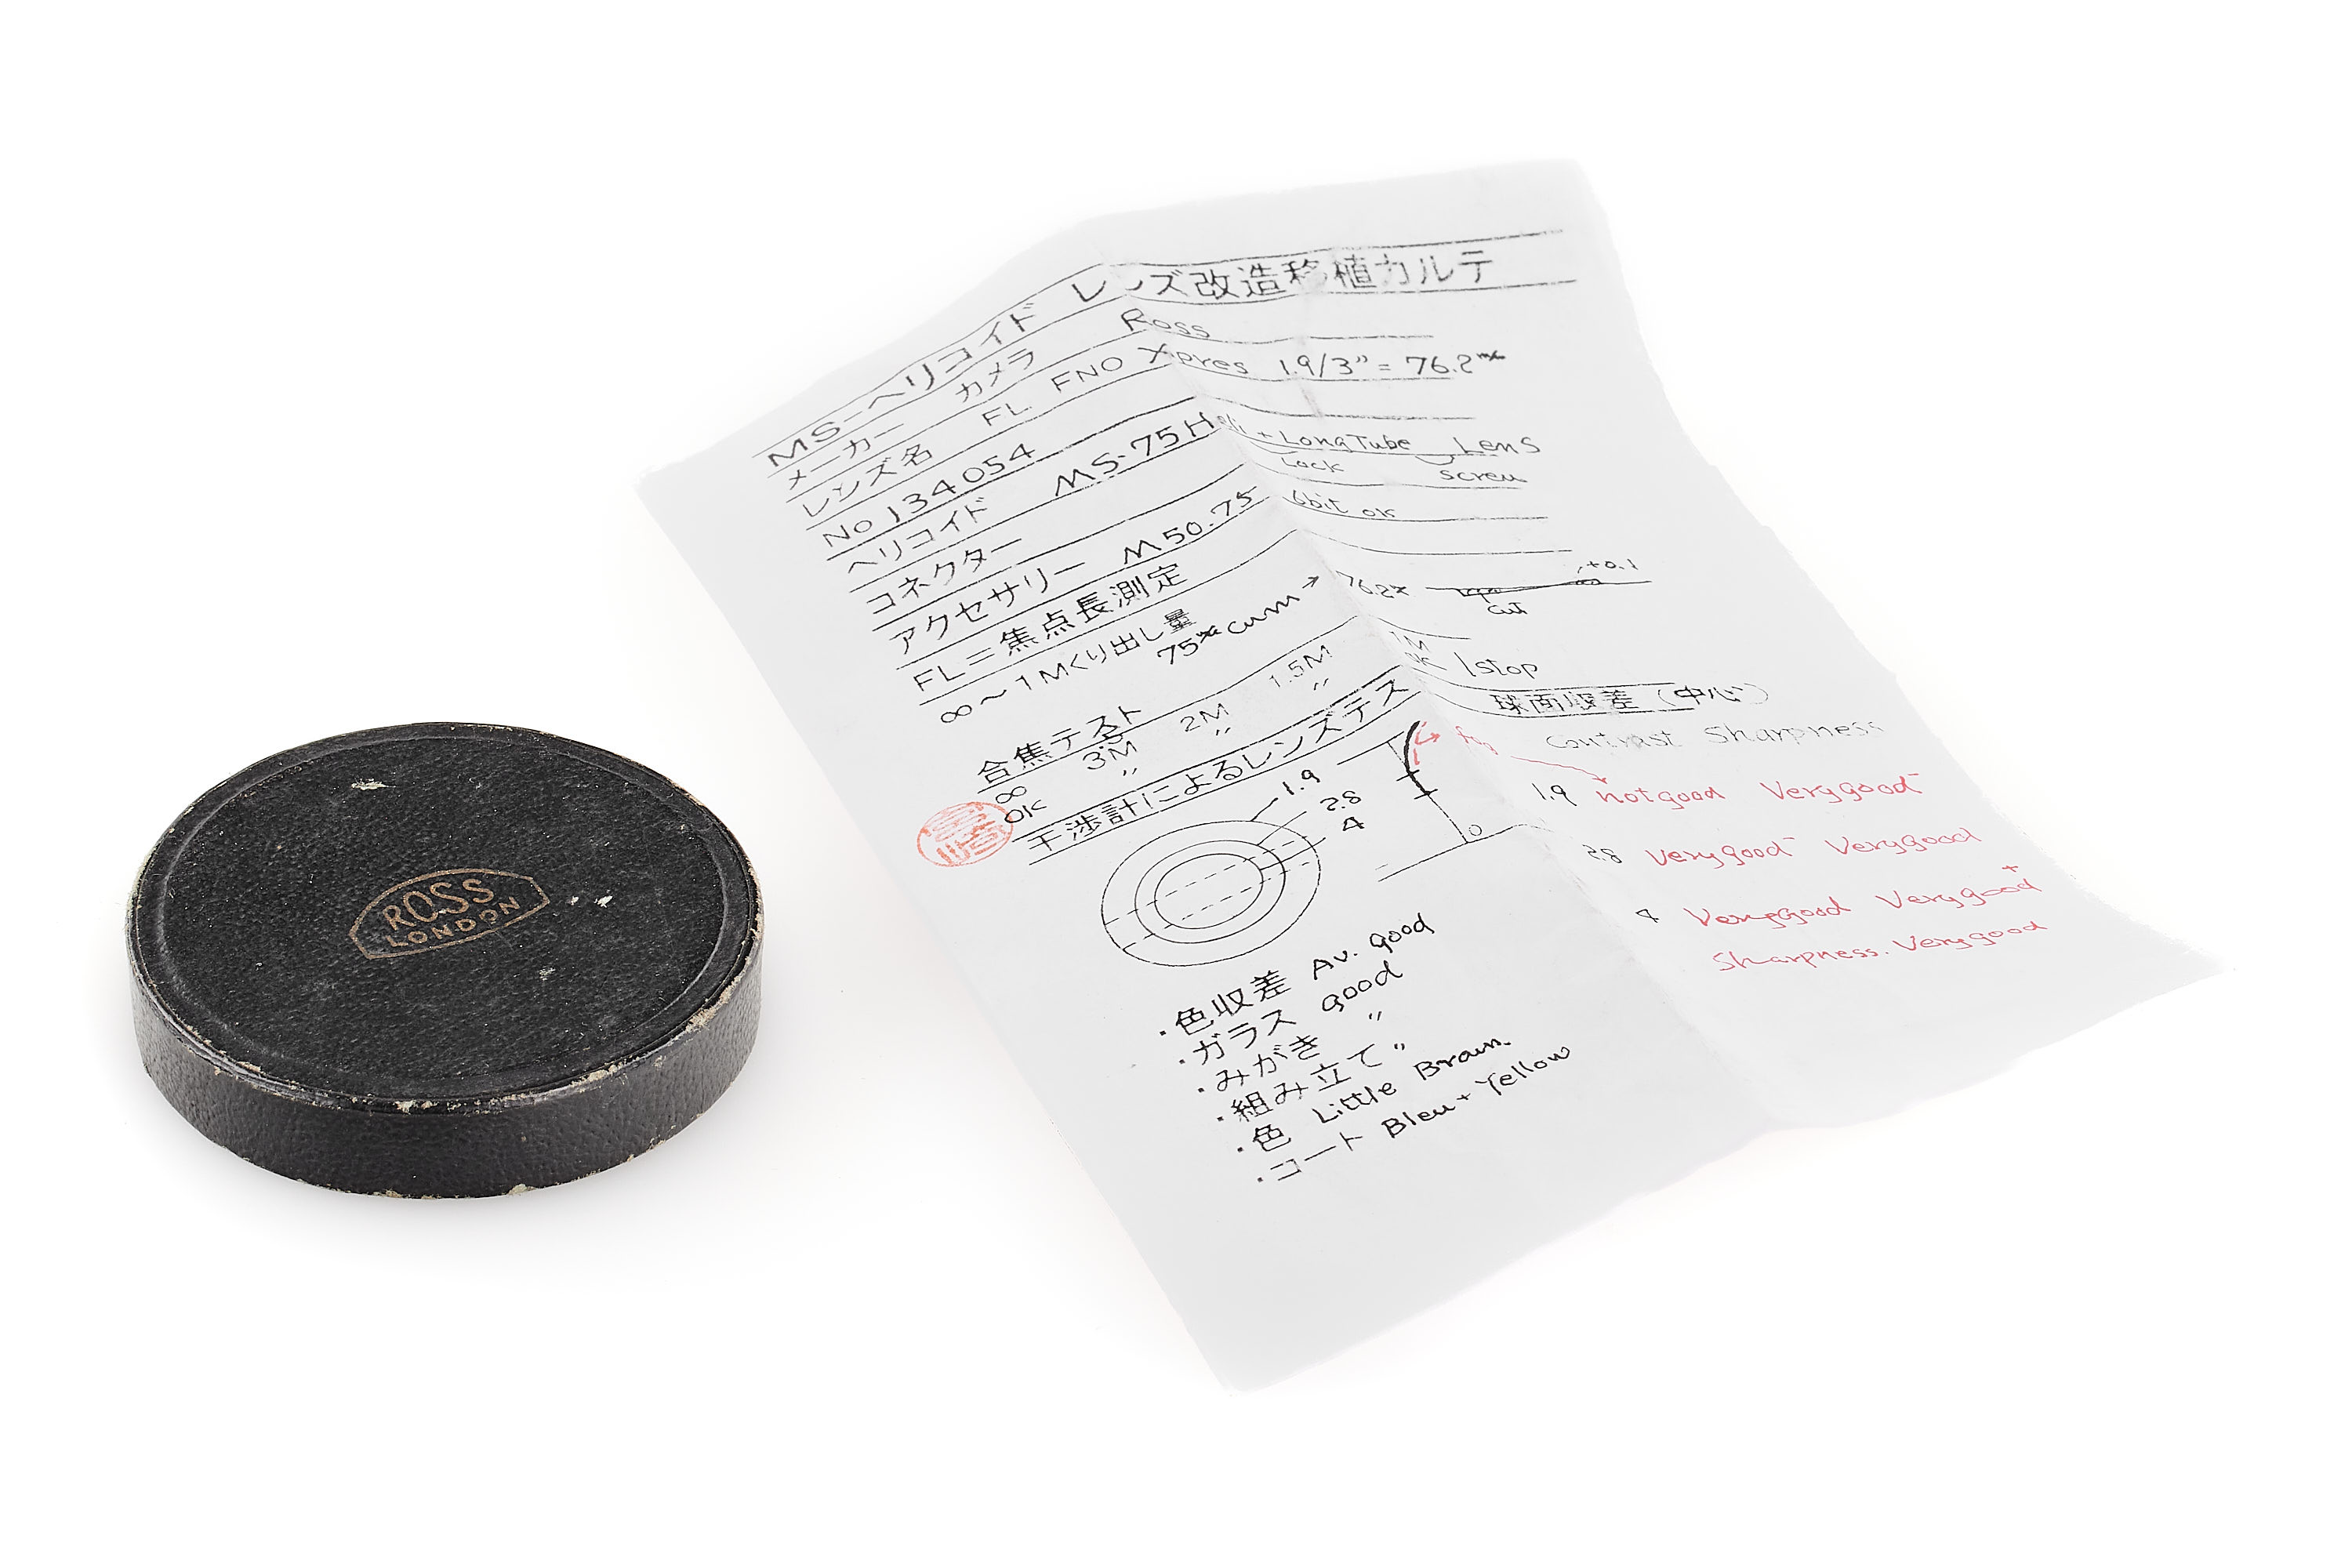 ROSS
LONDON
MS-ヘリコイド レンズ改造移植カルテ
メーカー カメラ Ross
レンズ名 FL FNO Xpres 1.9/3"= 76.2
No 134054
ヘリコイド MS-75H + LongTube Lens
Lock screw
コネクター 6bit OK
アクセサリー M50.75
FL=焦点長測定
∞~1Mくり出し量 75 → 76.2 +0.1
cut
合焦テスト
∞ 3M 2M 1.5M 1M
OK 〃 〃 〃 1stop
干渉計によるレンズテス 球面収差(中心)
Contrast Sharpness
1.9
2.8
4
0
1.9 notgood Verygood⁻
2.8 Verygood⁻ Verygood
4 Verygood Verygood⁺
Sharpness. Verygood
・色収差 Av. good
・ガラス good
・みがき 〃
・組み立て 〃
・色 Little Brawn.
・コート Bleu + Yellow